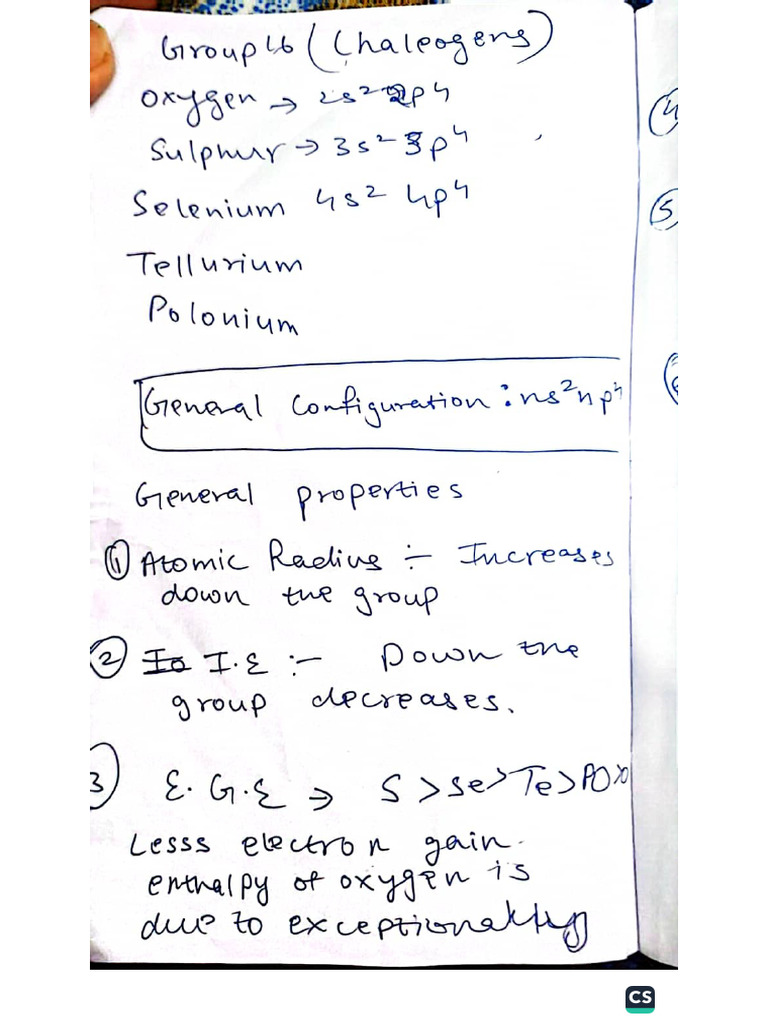 Group 16 (Chalcogens)
Oxygen → 2s² 2p⁴
Sulphur → 3s² 3p⁴
Selenium 4s² 4p⁴
Tellurium
Polonium
General Configuration : ns² np⁴
General properties
① Atomic Radius :- Increases
down the group
② I.E :- Down the
group decreases.
3 E.G.E → S > Se > Te > PO > O
Lesss electron gain
enthalpy of oxygen is
due to exceptionally
④
⑤
CS